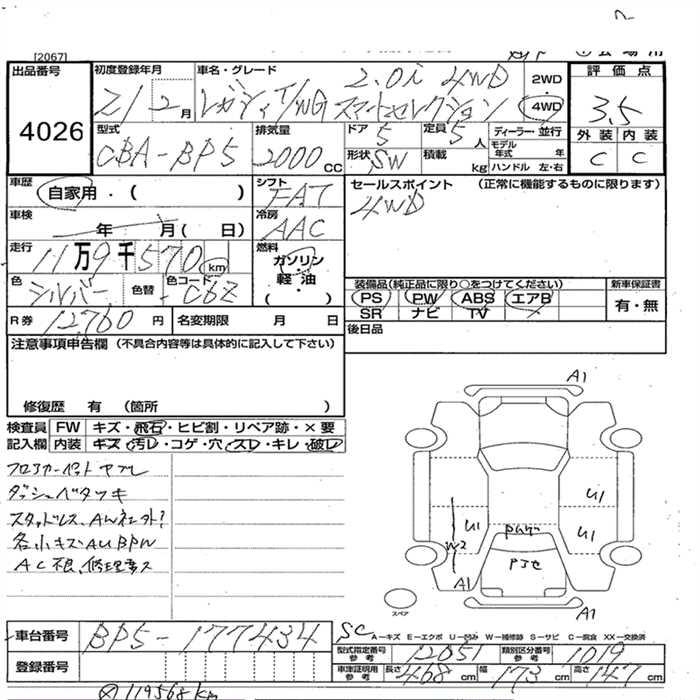 [2067]
出品番号
4026
初度登録年月
21/2月
車名・グレード
レガシィT/WG 2.0i 4WD スマートセレクション
2WD
4WD
評価点
3.5
外装 内装
C C
型式
CBA-BP5
排気量
2000 CC
ドア 5
定員 5人
形状 SW
積載 kg
ディーラー・並行
モデル年式 年
ハンドル 左・右
車歴
自家用・( )
シフト
FAT
セールスポイント (正常に機能するものに限ります)
4WD
車検
年 月( 日)
冷房
AAC
走行
11万9千570km
燃料
ガソリン・軽油
( ・ )
色
シルバー
色替
色コード
C6Z
装備品(純正品に限り○をつけてください)
PS PW ABS エアB
SR ナビ TV
新車保証書
有・無
R券 12760円
名変期限 月 日
後日品
注意事項申告欄 (不具合内容等は具体的に記入して下さい)
修復歴 有 (箇所 )
検査員記入欄
FW キズ・飛石・ヒビ割・リペア跡・×要
内装 キズ・汚レ・コゲ・穴・スレ・キレ・破レ
フロアカーペットヤブレ
ダッシュベタツキ
スタッドレス、AW社外?
各小キズAUBPW
AC不良、修理要ス
A1
U1
U1
U1
W2
A1
A1
スペア
A-キズ E-エクボ U-凹み W-補修跡 S-サビ C-腐食 XX-交換済
車台番号
BP5-177434
SC
型式指定番号 参考 12051
類別区分番号 参考 1019
登録番号
車庫証明用 参考 長さ 468cm 幅 173cm 高さ 147cm
119568km